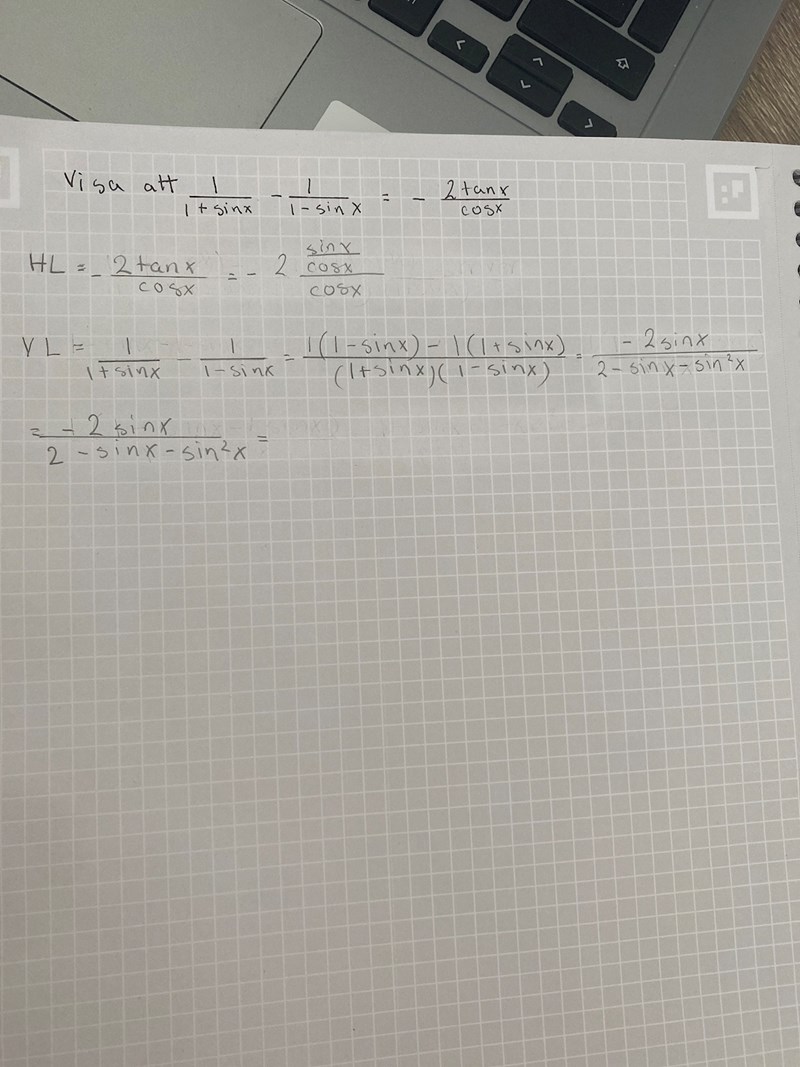 Visa att 1/(1+sinx) - 1/(1-sinx) = - 2tanx/cosx
HL = - 2tanx/cosx = - 2 (sinx/cosx)/cosx
VL = 1/(1+sinx) - 1/(1-sinx) = (1(1-sinx) - 1(1+sinx))/((1+sinx)(1-sinx)) = -2sinx/(2-sinx-sin²x)
= -2sinx/(2-sinx-sin²x) =